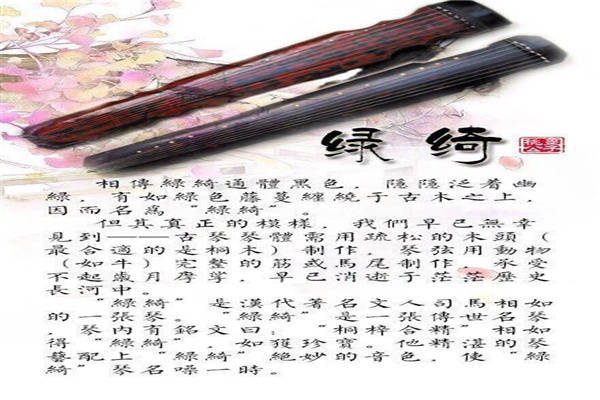 绿绮
相傳綠綺通體黑色，隱隱泛着幽
綠，有如綠色藤蔓纏繞于古木之上，
因而名爲“綠綺”。
但其真正的模樣，我們早已無幸
見到——古琴琴體需用疏松的木頭（
最合適的是桐木）制作，琴弦用動物
（如牛）完整的筋或馬尾制作，承受
不起歲月摩挲，早已消逝于茫茫歷史
長河中。
“綠綺”是漢代著名文人司馬相如
的一張琴。“綠綺”是一張傳世名琴
，琴内有銘文曰：“桐梓合精”相如
得“綠綺”，如獲珍寶。他精湛的琴
藝配上“綠綺”絕妙的音色，使“綠
綺”琴名噪一時。